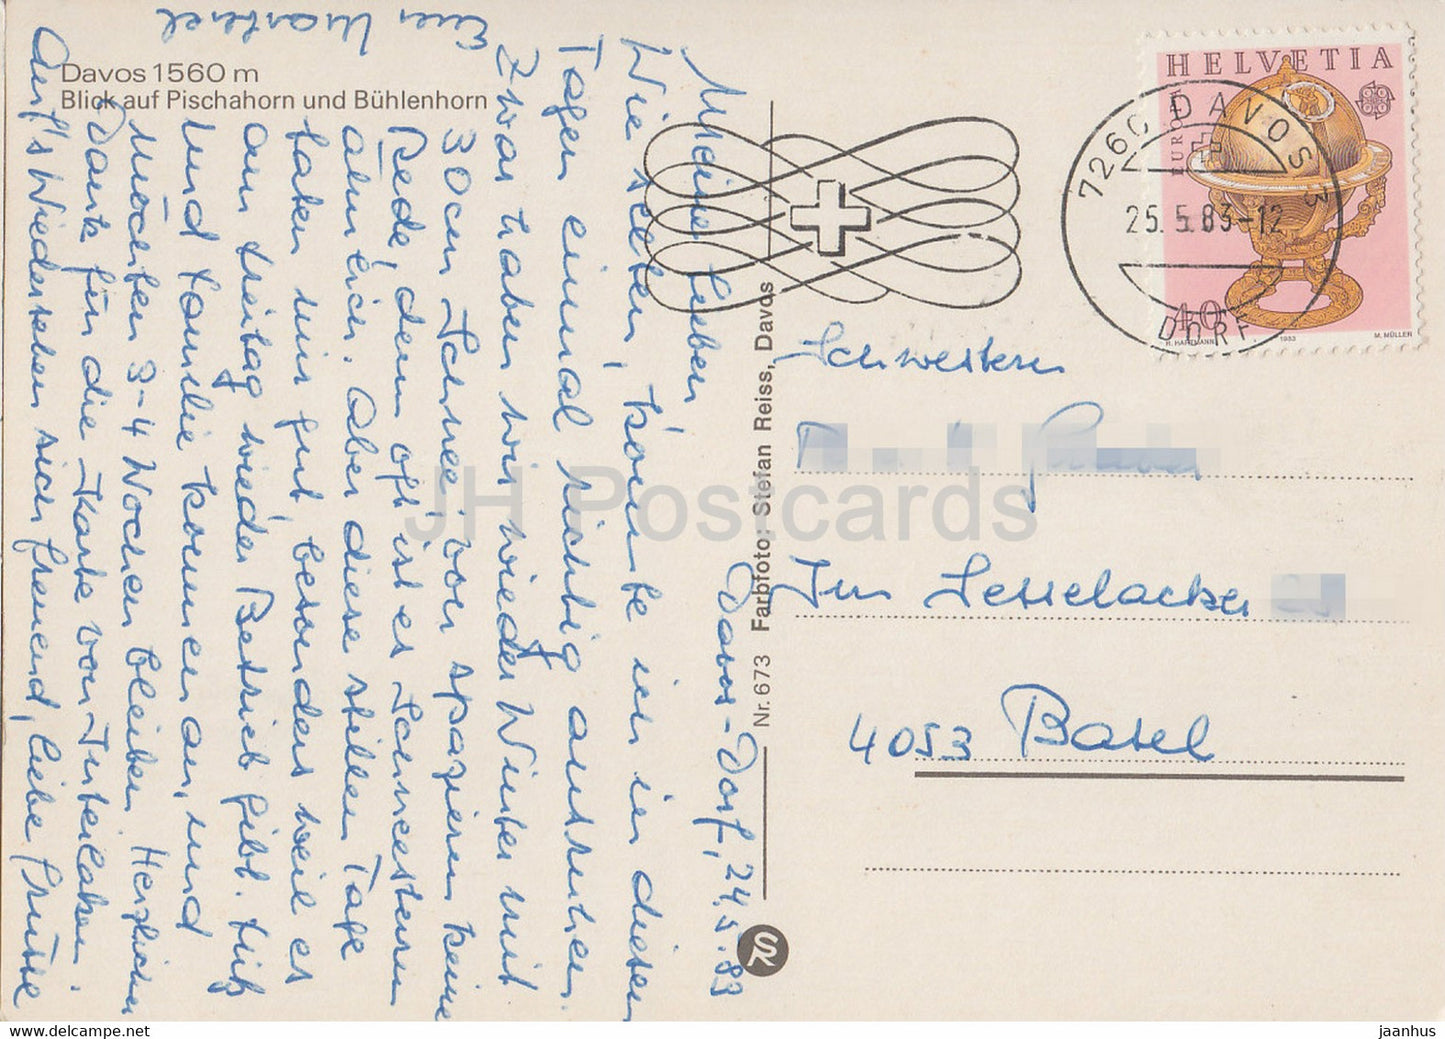 Davos 1560 m
Blick auf Pischahorn und Bühlenhorn
Davos-Dorf, 24.5.83
Meine Lieben
Wie selten, konnte ich in diesen
Tagen einmal richtig ausruhen.
Zwar haben wir wieder Winter mit
30cm Schnee, von spazieren keine
Rede, denn oft ist es Schneesturm
ähnlich. Aber diese stillen Tage
taten mir gut, besonders weil es
am Freitag wieder Betrieb gibt.
und Familie kommen an, und
möchten 3-4 Wochen bleiben. Herzlichen
Dank für die Karte von Interlaken.
Auf's Wiedersehen sich freuend, liebe Grüsse
Euer
Nr. 673 Farbfoto: Stefan Reiss, Davos
SR
HELVETIA
EUROPA
40
R. HARTMANN 1983 M. MÜLLER
7260 DAVOS 3
25.5.83-12
DORF
Schwestern
Im Sesselacker
4053 Basel
JH Postcards
hippostcard.com
jaanhus